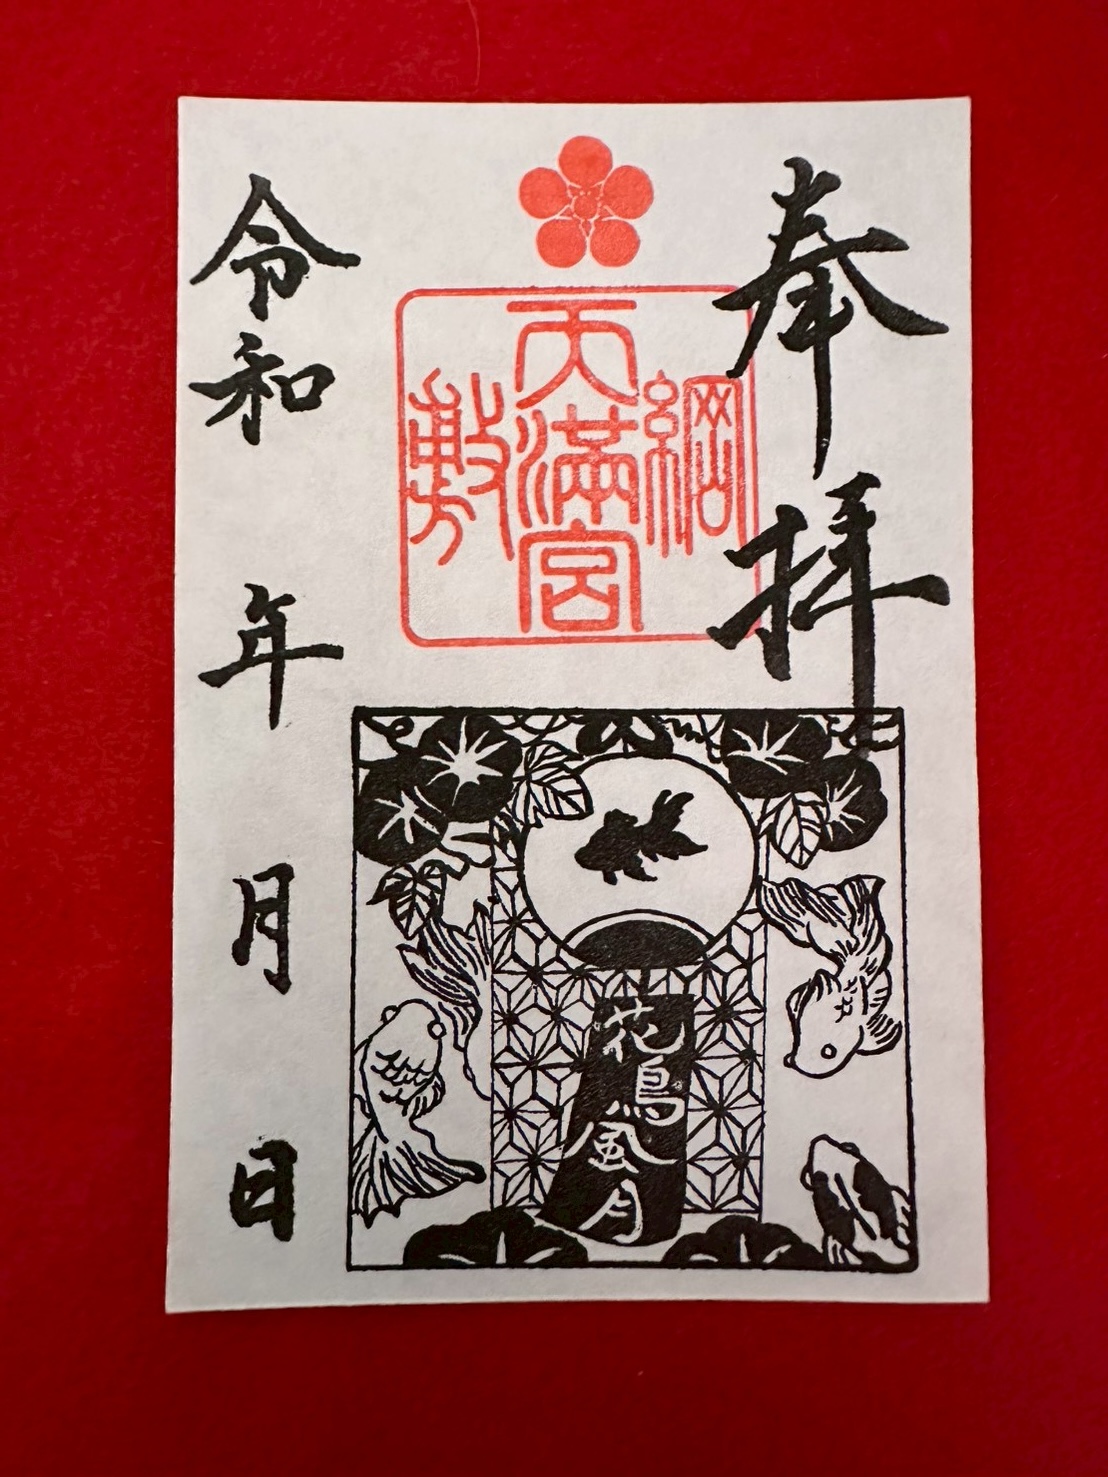 奉拝
綱敷
天満宮
花鳥風月
令和 年 月 日